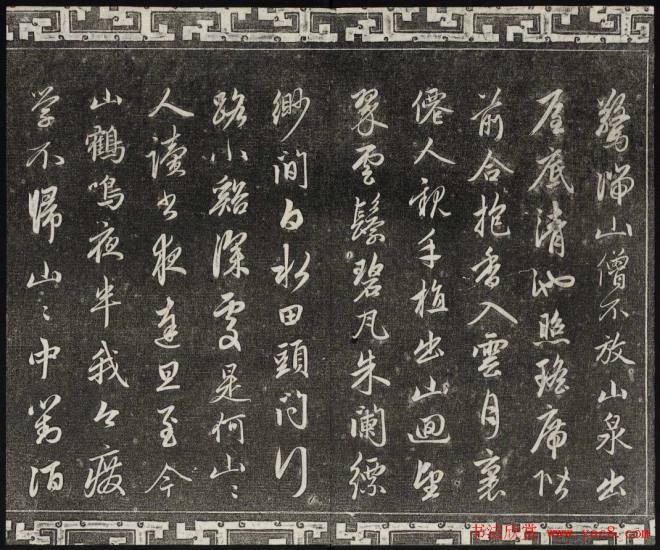 驚湍山僧不放山泉出
屋底清池照瑤席階
前合抱香入雲月裏
僊人親手植出山迴望
翠雲鬟碧瓦朱闌縹
緲間白水田頭問行
路小谿深處是何山〻
人讀書夜達旦至今
山鶴鳴夜半我今廢
學不歸山〻中對酒
书法欣赏 www.yac8.com